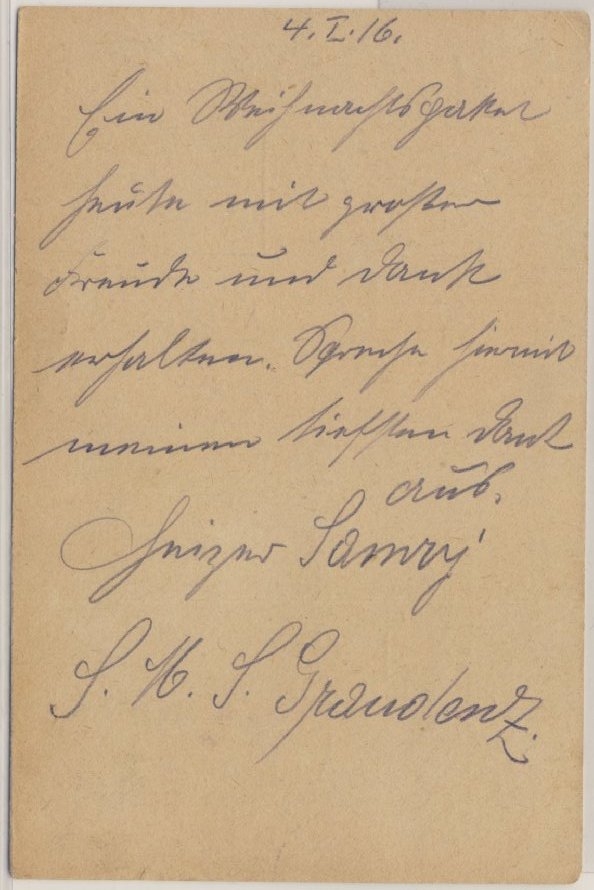 4. I. 16.
Ein Weihnachtspaket
heute mit großer
Freude und Dank
erhalten. Spreche hiermit
meinen tiefsten Dank
aus.
Heizer
S. M. S. Graudenz.